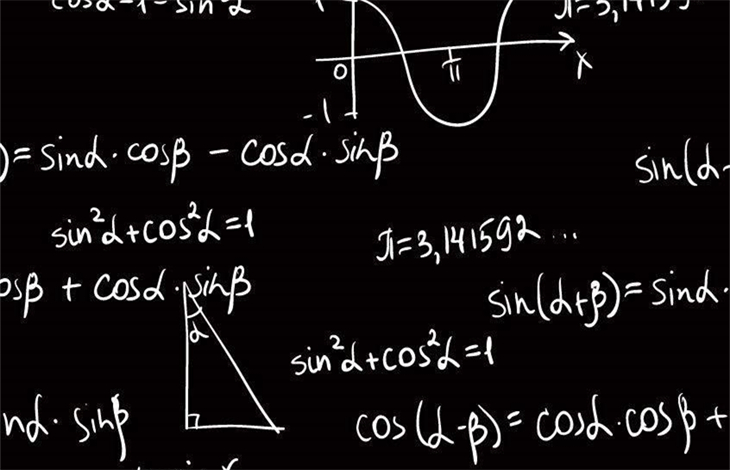 π=3,14159
0
π
x
-1
)=sinα·cosβ - cosα·sinβ
sin(α-
sin²α+cos²α=1
π=3,141592...
osβ + cosα·sinβ
sin(α+β)=sinα·
α
sin²α+cos²α=1
nα·sinβ
cos(α-β)=cosα·cosβ+